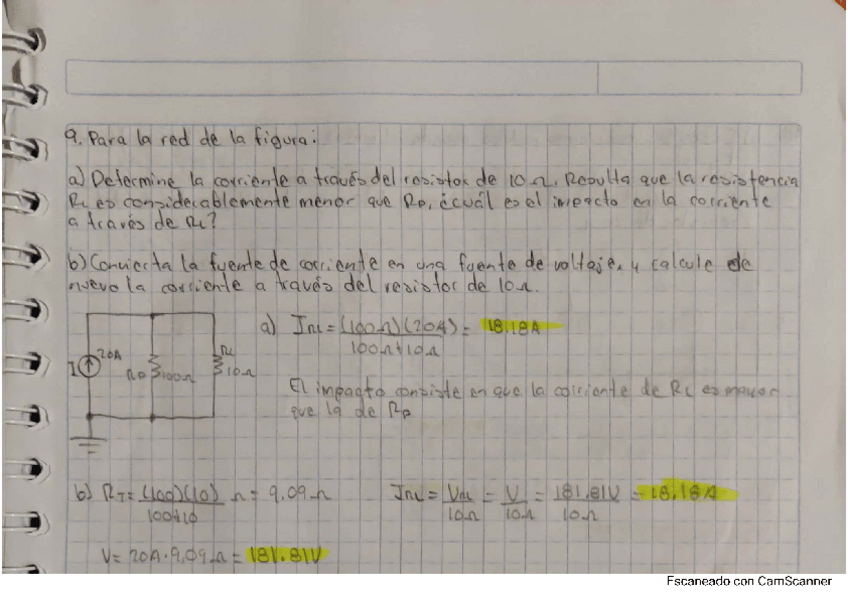 9. Para la red de la figura:
a) Determine la corriente a través del resistor de 10 Ω. Resulta que la resistencia
RL es considerablemente menor que Rp, ¿cuál es el impacto en la corriente
a través de RL?
b) Convierta la fuente de corriente en una fuente de voltaje, y calcule de
nuevo la corriente a través del resistor de 10Ω.
a) IRL = (100Ω)(20A) = 18.18A
100Ω+10Ω
I 20A Rp 100Ω RL 10Ω
El impacto consiste en que la corriente de RL es mayor
que la de Rp
b) RT = (100)(10) Ω = 9.09 Ω
100+10
IRL = VRL = V = 181.81V = 18.18A
10Ω 10Ω 10Ω
V = 20A · 9.09Ω = 181.81V
Escaneado con CamScanner